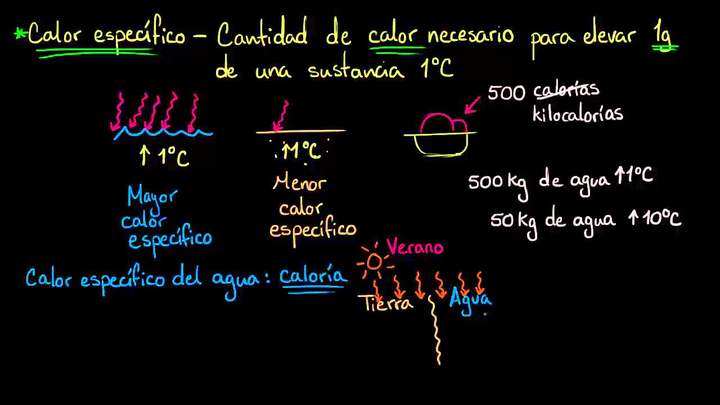 *Calor específico - Cantidad de calor necesario para elevar 1g
de una sustancia 1°C
500 calorías
kilocalorías
↑ 1°C
↑1°C
Mayor
calor
específico
Menor
calor
específico
500kg de agua ↑1°C
50kg de agua ↑10°C
Calor específico del agua: caloría
Verano
Tierra
Agua